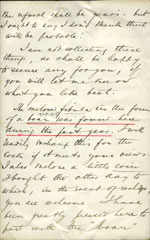 the refusal shall be yours. but
I ought to say I don't think there
will be probable!
I am not collecting these
things, so shall be happy
to secure any for you, if
you will let me know
what you like best.
The metoria fibula in the form
of a boar was found here
during the past year. I will
readily exchange this for the
cost of it meets your views
I also before a little coin
I bought the other day to
which, in the event of exchange
you are welcome. I have
been greatly pressed here to
part with the "boar"